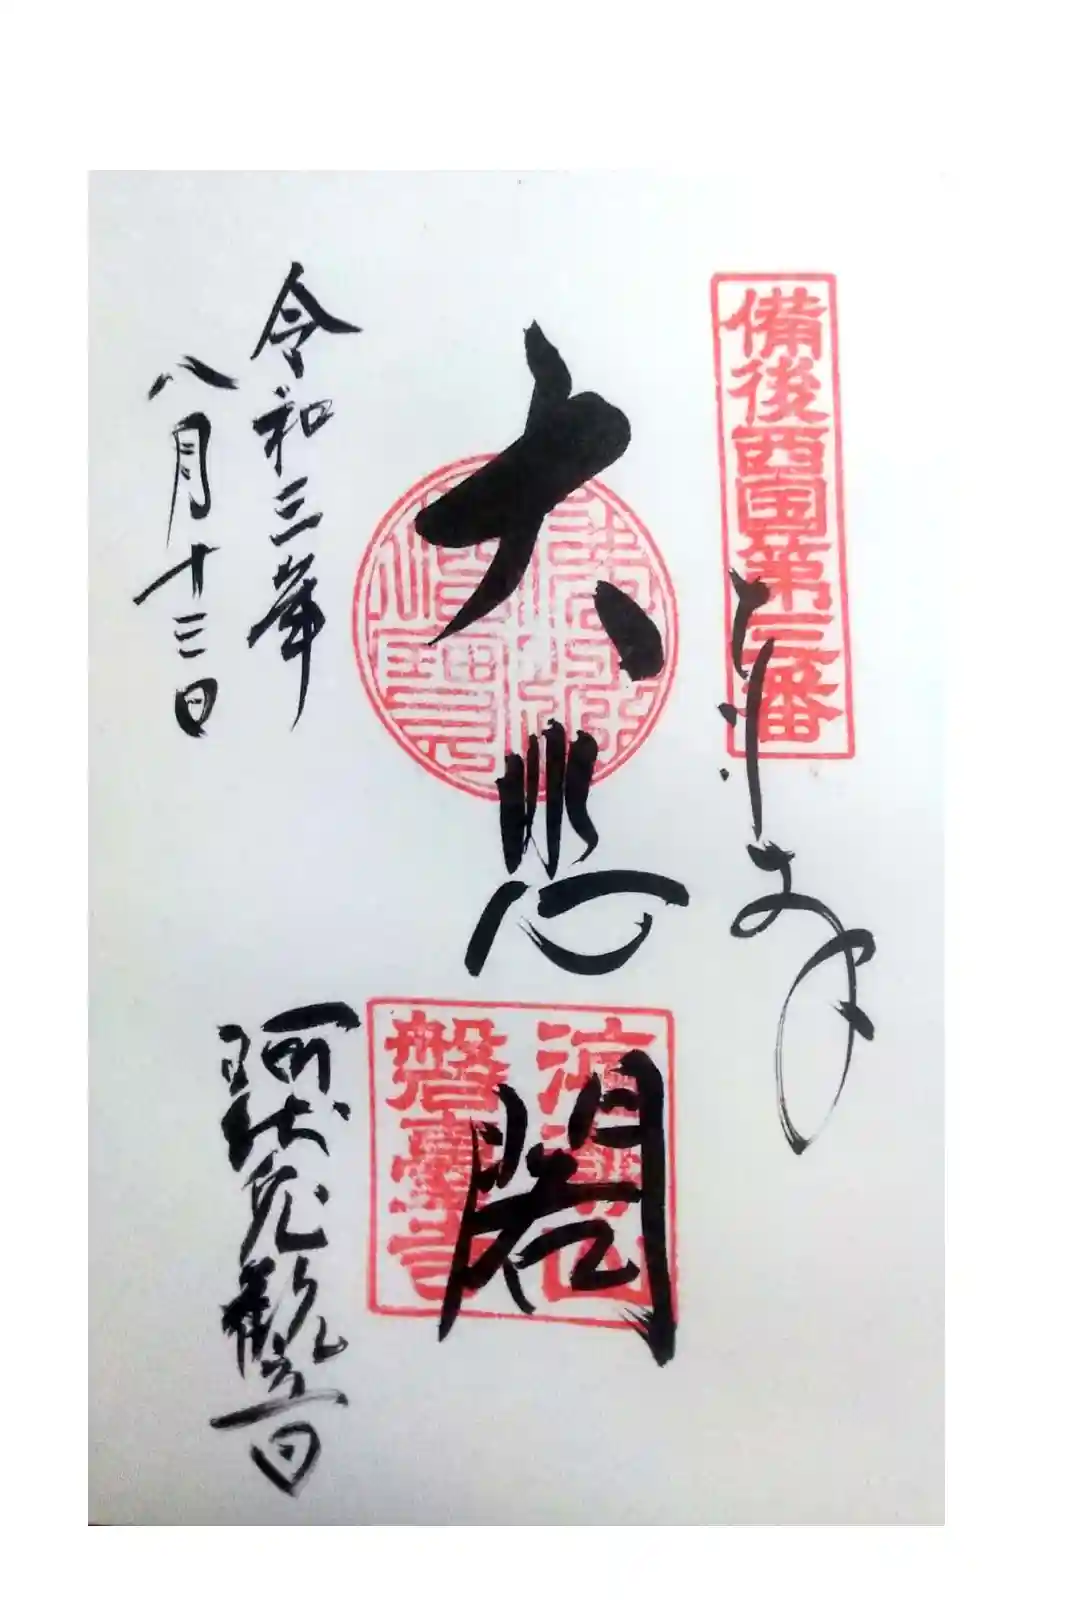 備後西国第三番
奉拝
大悲閣
海潮山
磐臺寺
令和三年
八月十三日
阿伏兎観音